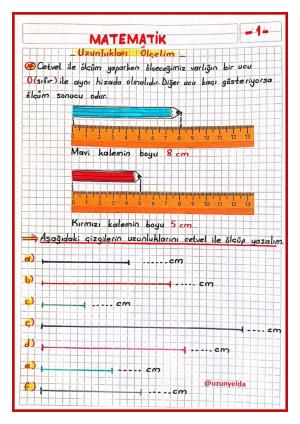 MATEMATİK
-1-
Uzunlukları Ölçelim
Cetvel ile ölçüm yaparken ölçeceğimiz varlığın bir ucu
0 (sıfır) ile aynı hizada olmalıdır. Diğer ucu kaçı gösteriyorsa
ölçüm sonucu odur.
0 1 2 3 4 5 6 7 8 9 10 11 12 13
Mavi kalemin boyu 8 cm
0 1 2 3 4 5 6 7 8 9 10 11 12 13
Kırmızı kalemin boyu 5 cm
Aşağıdaki çizgilerin uzunluklarını cetvel ile ölçüp yazalım.
a) ..... cm
b) ..... cm
c) ..... cm
ç) ..... cm
d) ..... cm
e) ..... cm
f) ..... cm
@uzunyelda